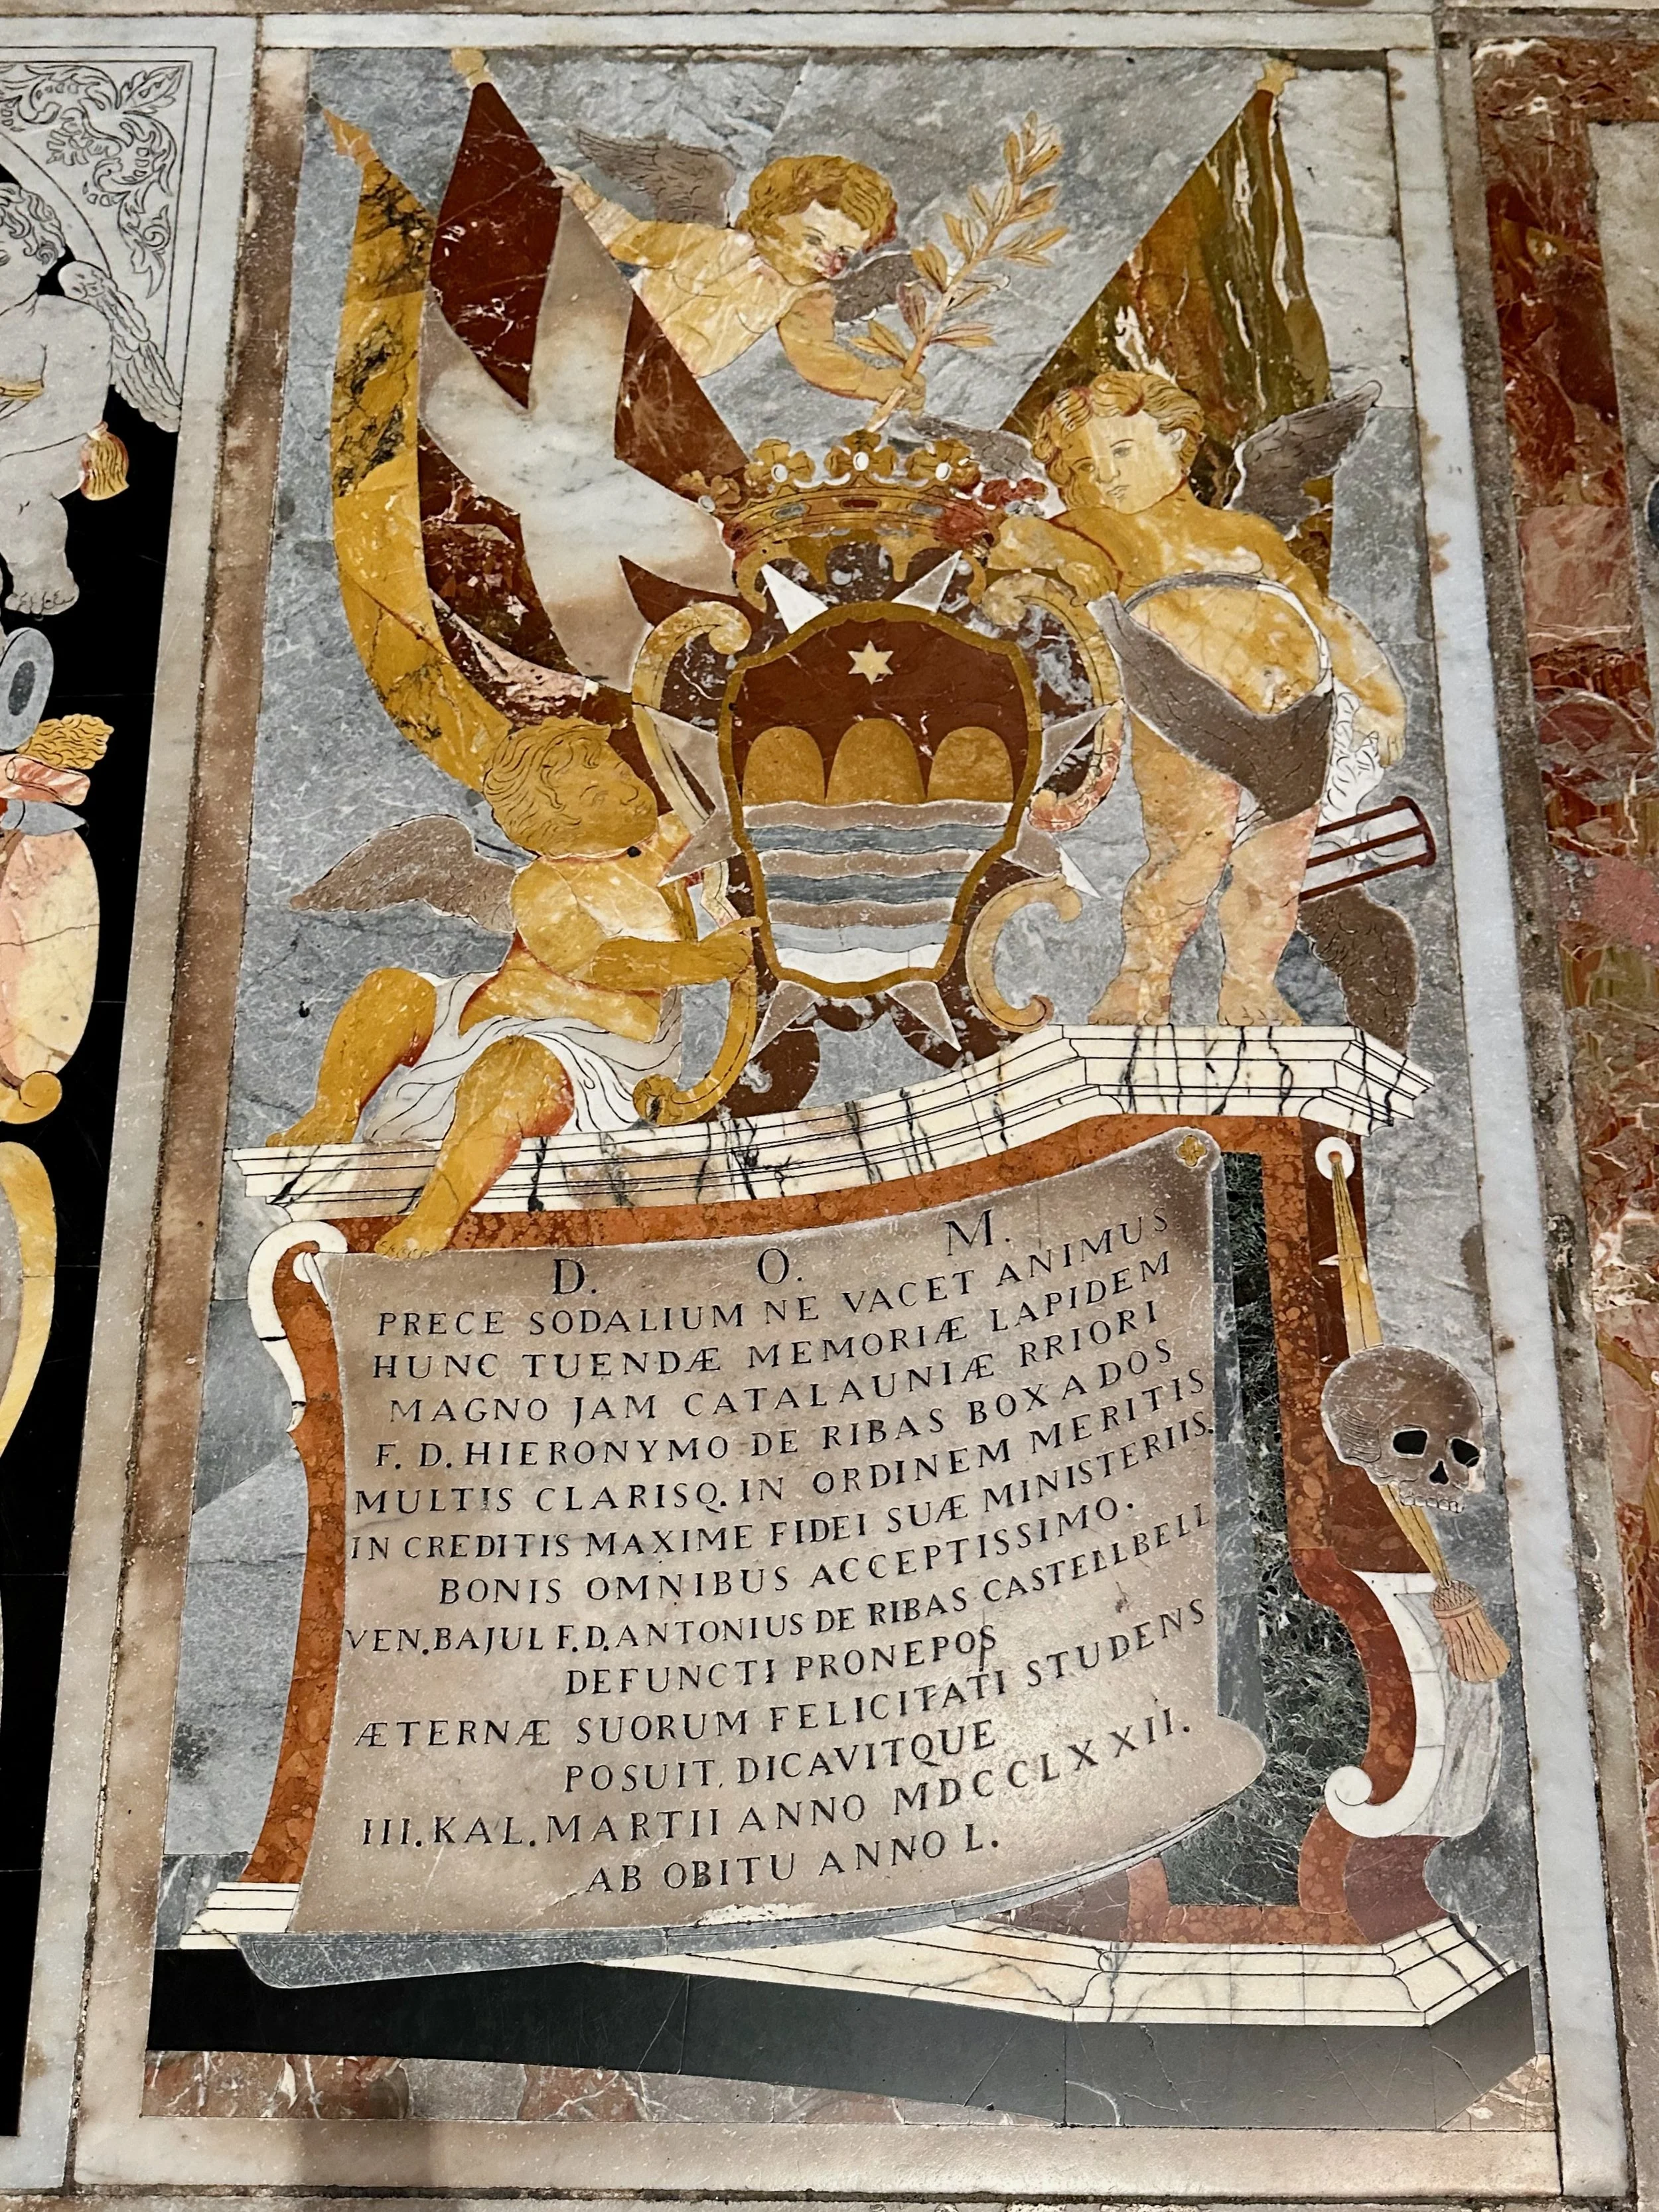 D. O. M.
PRECE SODALIUM NE VACET ANIMUS
HUNC TUENDÆ MEMORIÆ LAPIDEM
MAGNO JAM CATALAUNIÆ RRIORI
F. D. HIERONYMO DE RIBAS BOXADOS
MULTIS CLARISQ. IN ORDINEM MERITIS
IN CREDITIS MAXIME FIDEI SUÆ MINISTERIIS.
BONIS OMNIBUS ACCEPTISSIMO.
VEN. BAJUL F. D. ANTONIUS DE RIBAS CASTELLBELL
DEFUNCTI PRONEPOS
ÆTERNÆ SUORUM FELICITATI STUDENS
POSUIT, DICAVITQUE
III. KAL. MARTII ANNO MDCCLXXII.
AB OBITU ANNO L.